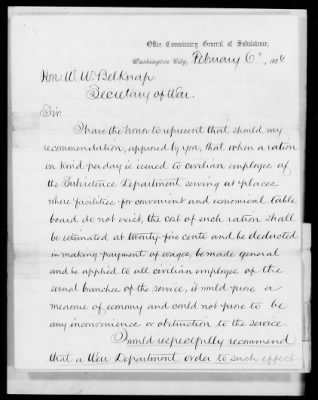 Office Commissary General of Subsistence,
Washington City, February 6", 1874
Hon: W. W. Belknap,
Secretary of War.
Sir:
I have the honor to represent that should my
recommendation, approved by you, that when a ration
in kind per day is issued to civilian employes of
the Subsistence Department serving at places
where facilities for convenient and economical table
board do not exist, the cost of such ration shall
be estimated at twenty-five cents and be deducted
in making payment of wages, be made general
and be applied to all civilian employes of the
several branches of the service, it would prove a
measure of economy and could not prove to be
any inconvenience or obstruction to the service.
I would respectfully recommend
that a War Department order to such effect